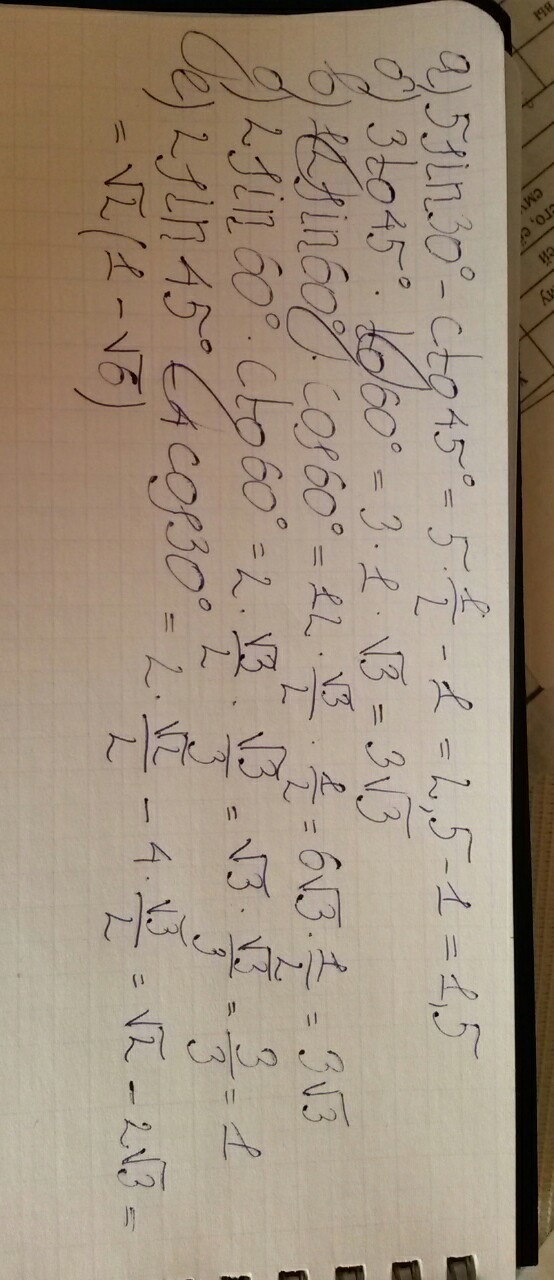 а) 5sin30° - ctg45° = 5·1/2 - 1 = 2,5 - 1 = 1,5
б) 3tg45° · tg60° = 3 · 1 · √3 = 3√3
в) 12sin60° · cos60° = 12 · √3/2 · 1/2 = 6√3 · 1/2 = 3√3
д) 2sin60° · ctg60° = 2 · √3/2 · √3/3 = √3 · √3/3 = 3/3 = 1
е) 2sin45° - 4cos30° = 2 · √2/2 - 4 · √3/2 = √2 - 2√3 =
= √2(1 - √6)